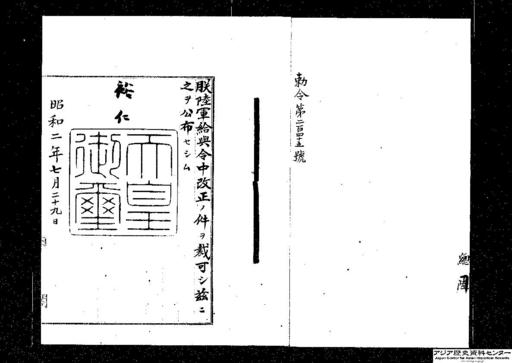 勅令第二百四十五號
朕陸軍給與令中改正ノ件ヲ裁可シ茲ニ
之ヲ公布セシム
裕仁
天皇御璽
昭和二年七月二十九日
アジア歴史資料センター
Japan Center for Asian Historical Records